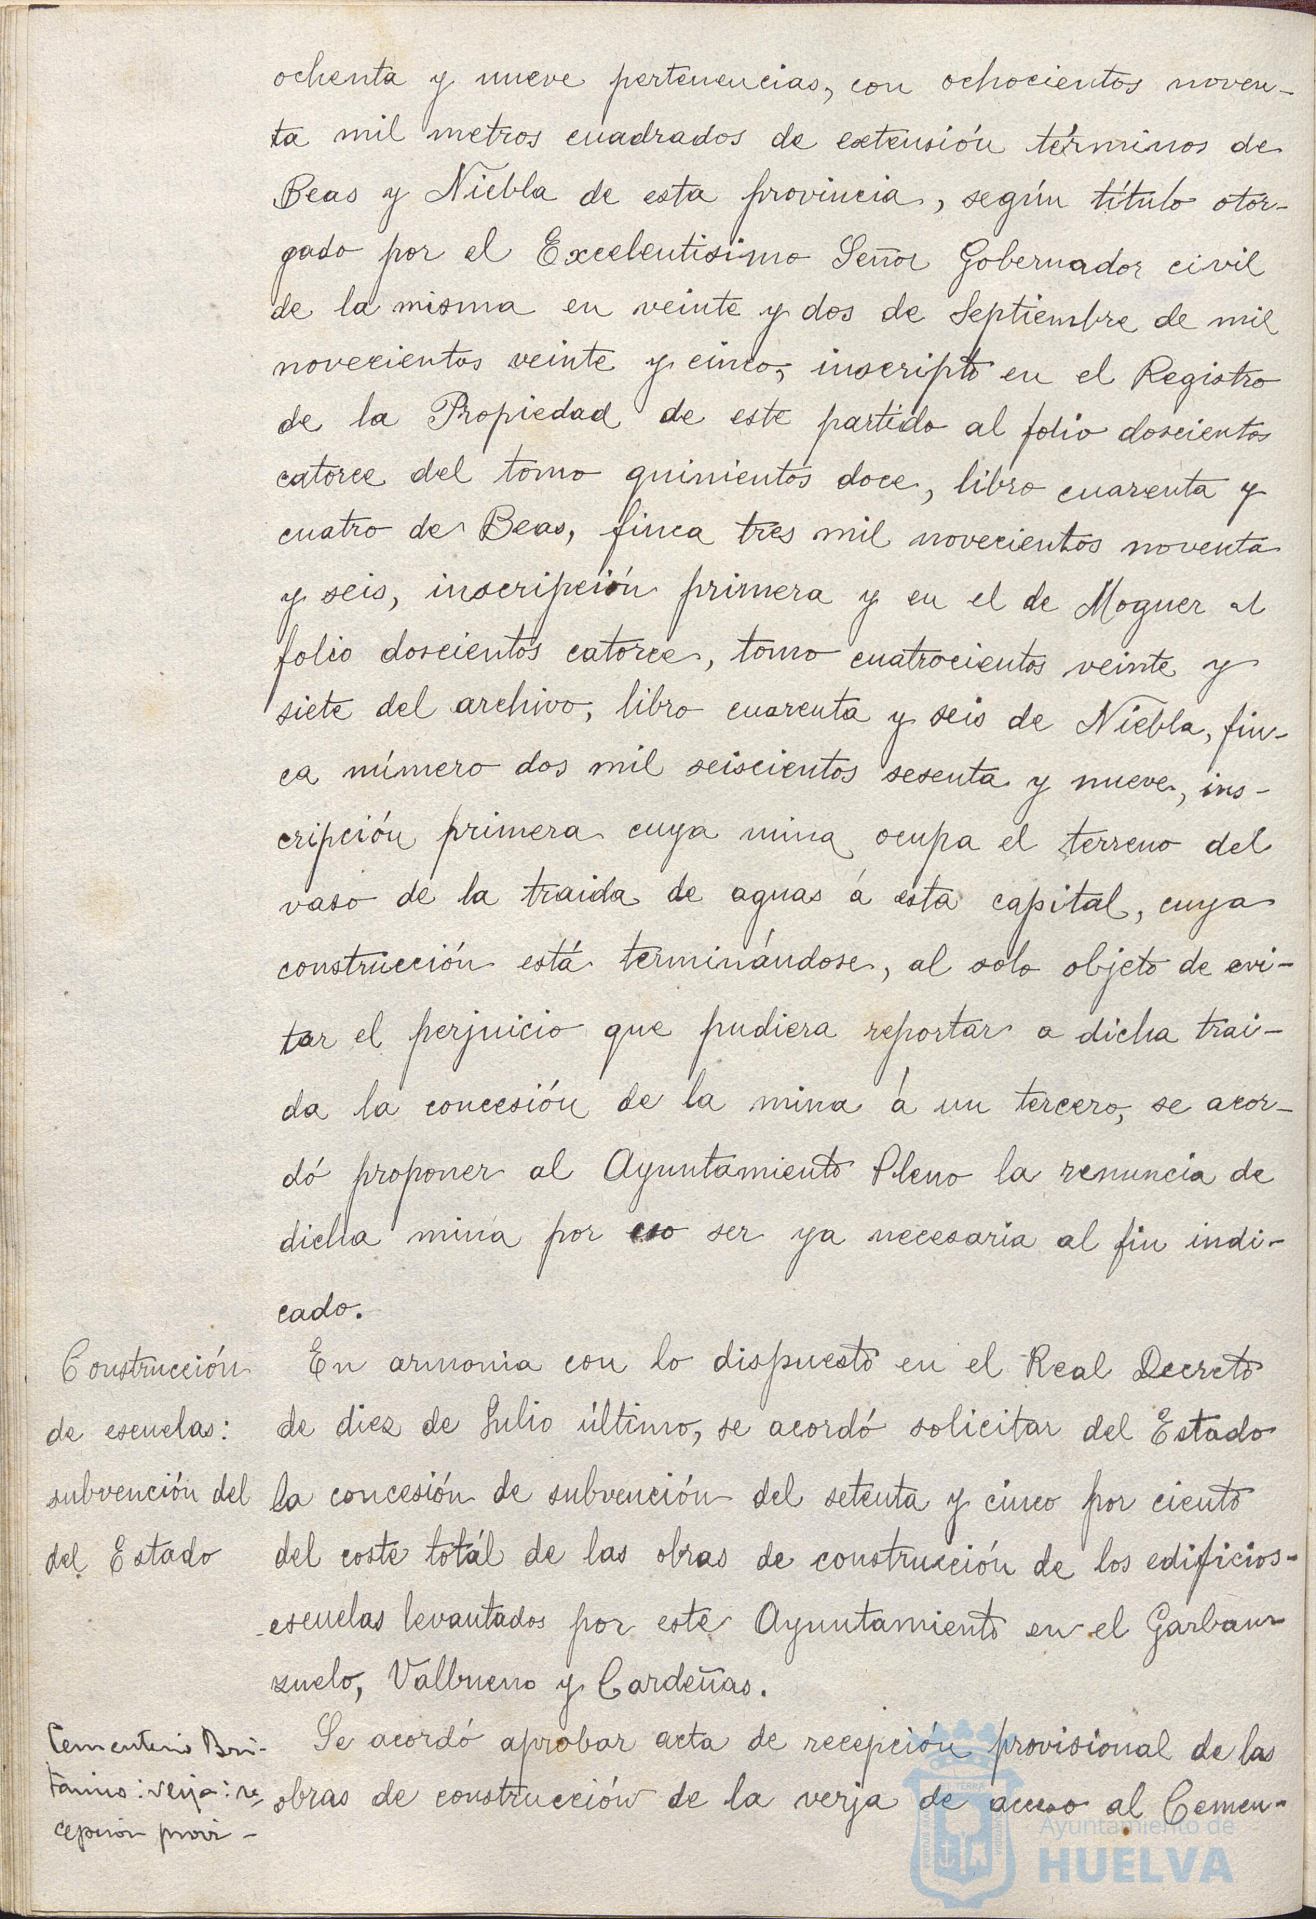 ochenta y nueve pertenencias, con ochocientos noven-
ta mil metros cuadrados de extensión términos de
Beas y Niebla de esta provincia, según título otor-
gado por el Excelentisimo Señor Gobernador civil
de la misma en veinte y dos de Septiembre de mil
novecientos veinte y cinco, inscripto en el Registro
de la Propiedad de este partido al folio doscientos
catorce del tomo quinientos doce, libro cuarenta y
cuatro de Beas, finca tres mil novecientos noventa
y seis, inscripción primera y en el de Moguer al
folio doscientos catorce, tomo cuatrocientos veinte y
siete del archivo, libro cuarenta y seis de Niebla, fin-
ca número dos mil seiscientos sesenta y nueve, ins-
cripción primera cuya mina ocupa el terreno del
vaso de la traida de aguas á esta capital, cuya
construcción está terminándose, al solo objeto de evi-
tar el perjuicio que pudiera reportar a dicha trai-
da la concesión de la mina á un tercero, se acor-
dó proponer al Ayuntamiento Pleno la renuncia de
dicha mina por eso ser ya necesaria al fin indi-
cado.
Construcción
de escuelas:
subvención del
del Estado
En armonia con lo dispuesto en el Real Decreto
de diez de Julio último, se acordó solicitar del Estado
la concesión de subvención del setenta y cinco por ciento
del coste totál de las obras de construcción de los edificios-
escuelas levantados por este Ayuntamiento en el Garban-
zuelo, Valbueno y Cardeñas.
Cementerio Bri-
tanico: verja: re-
cepcion provi-
Se acordó aprobar acta de recepción provisional de las
obras de construcción de la verja de acceso al Cemen-
Ayuntamiento de
HUELVA